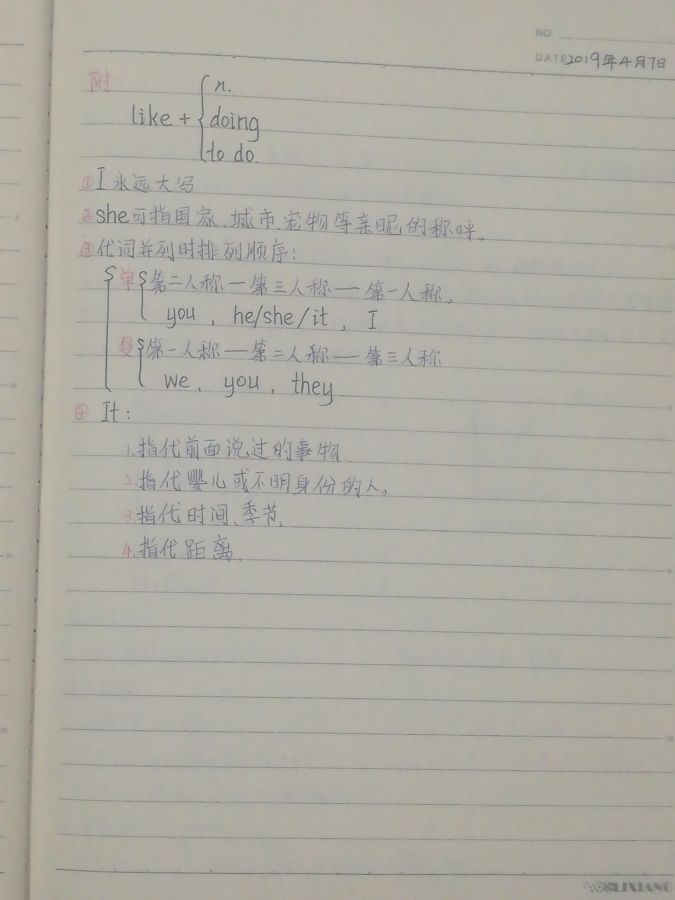 NO.
DATE 2019年4月7日
附:
n.
like + doing
to do.
①I 永远大写
②she可指国家、城市、宠物等亲昵的称呼。
③代词并列时排列顺序:
单 第二人称—第三人称—第一人称。
you , he/she/it , I
复 第一人称—第二人称—第三人称
we、you、they
④ It:
1.指代前面说过的事物
2.指代婴儿或不明身份的人。
3.指代时间、季节、
4.指代距离